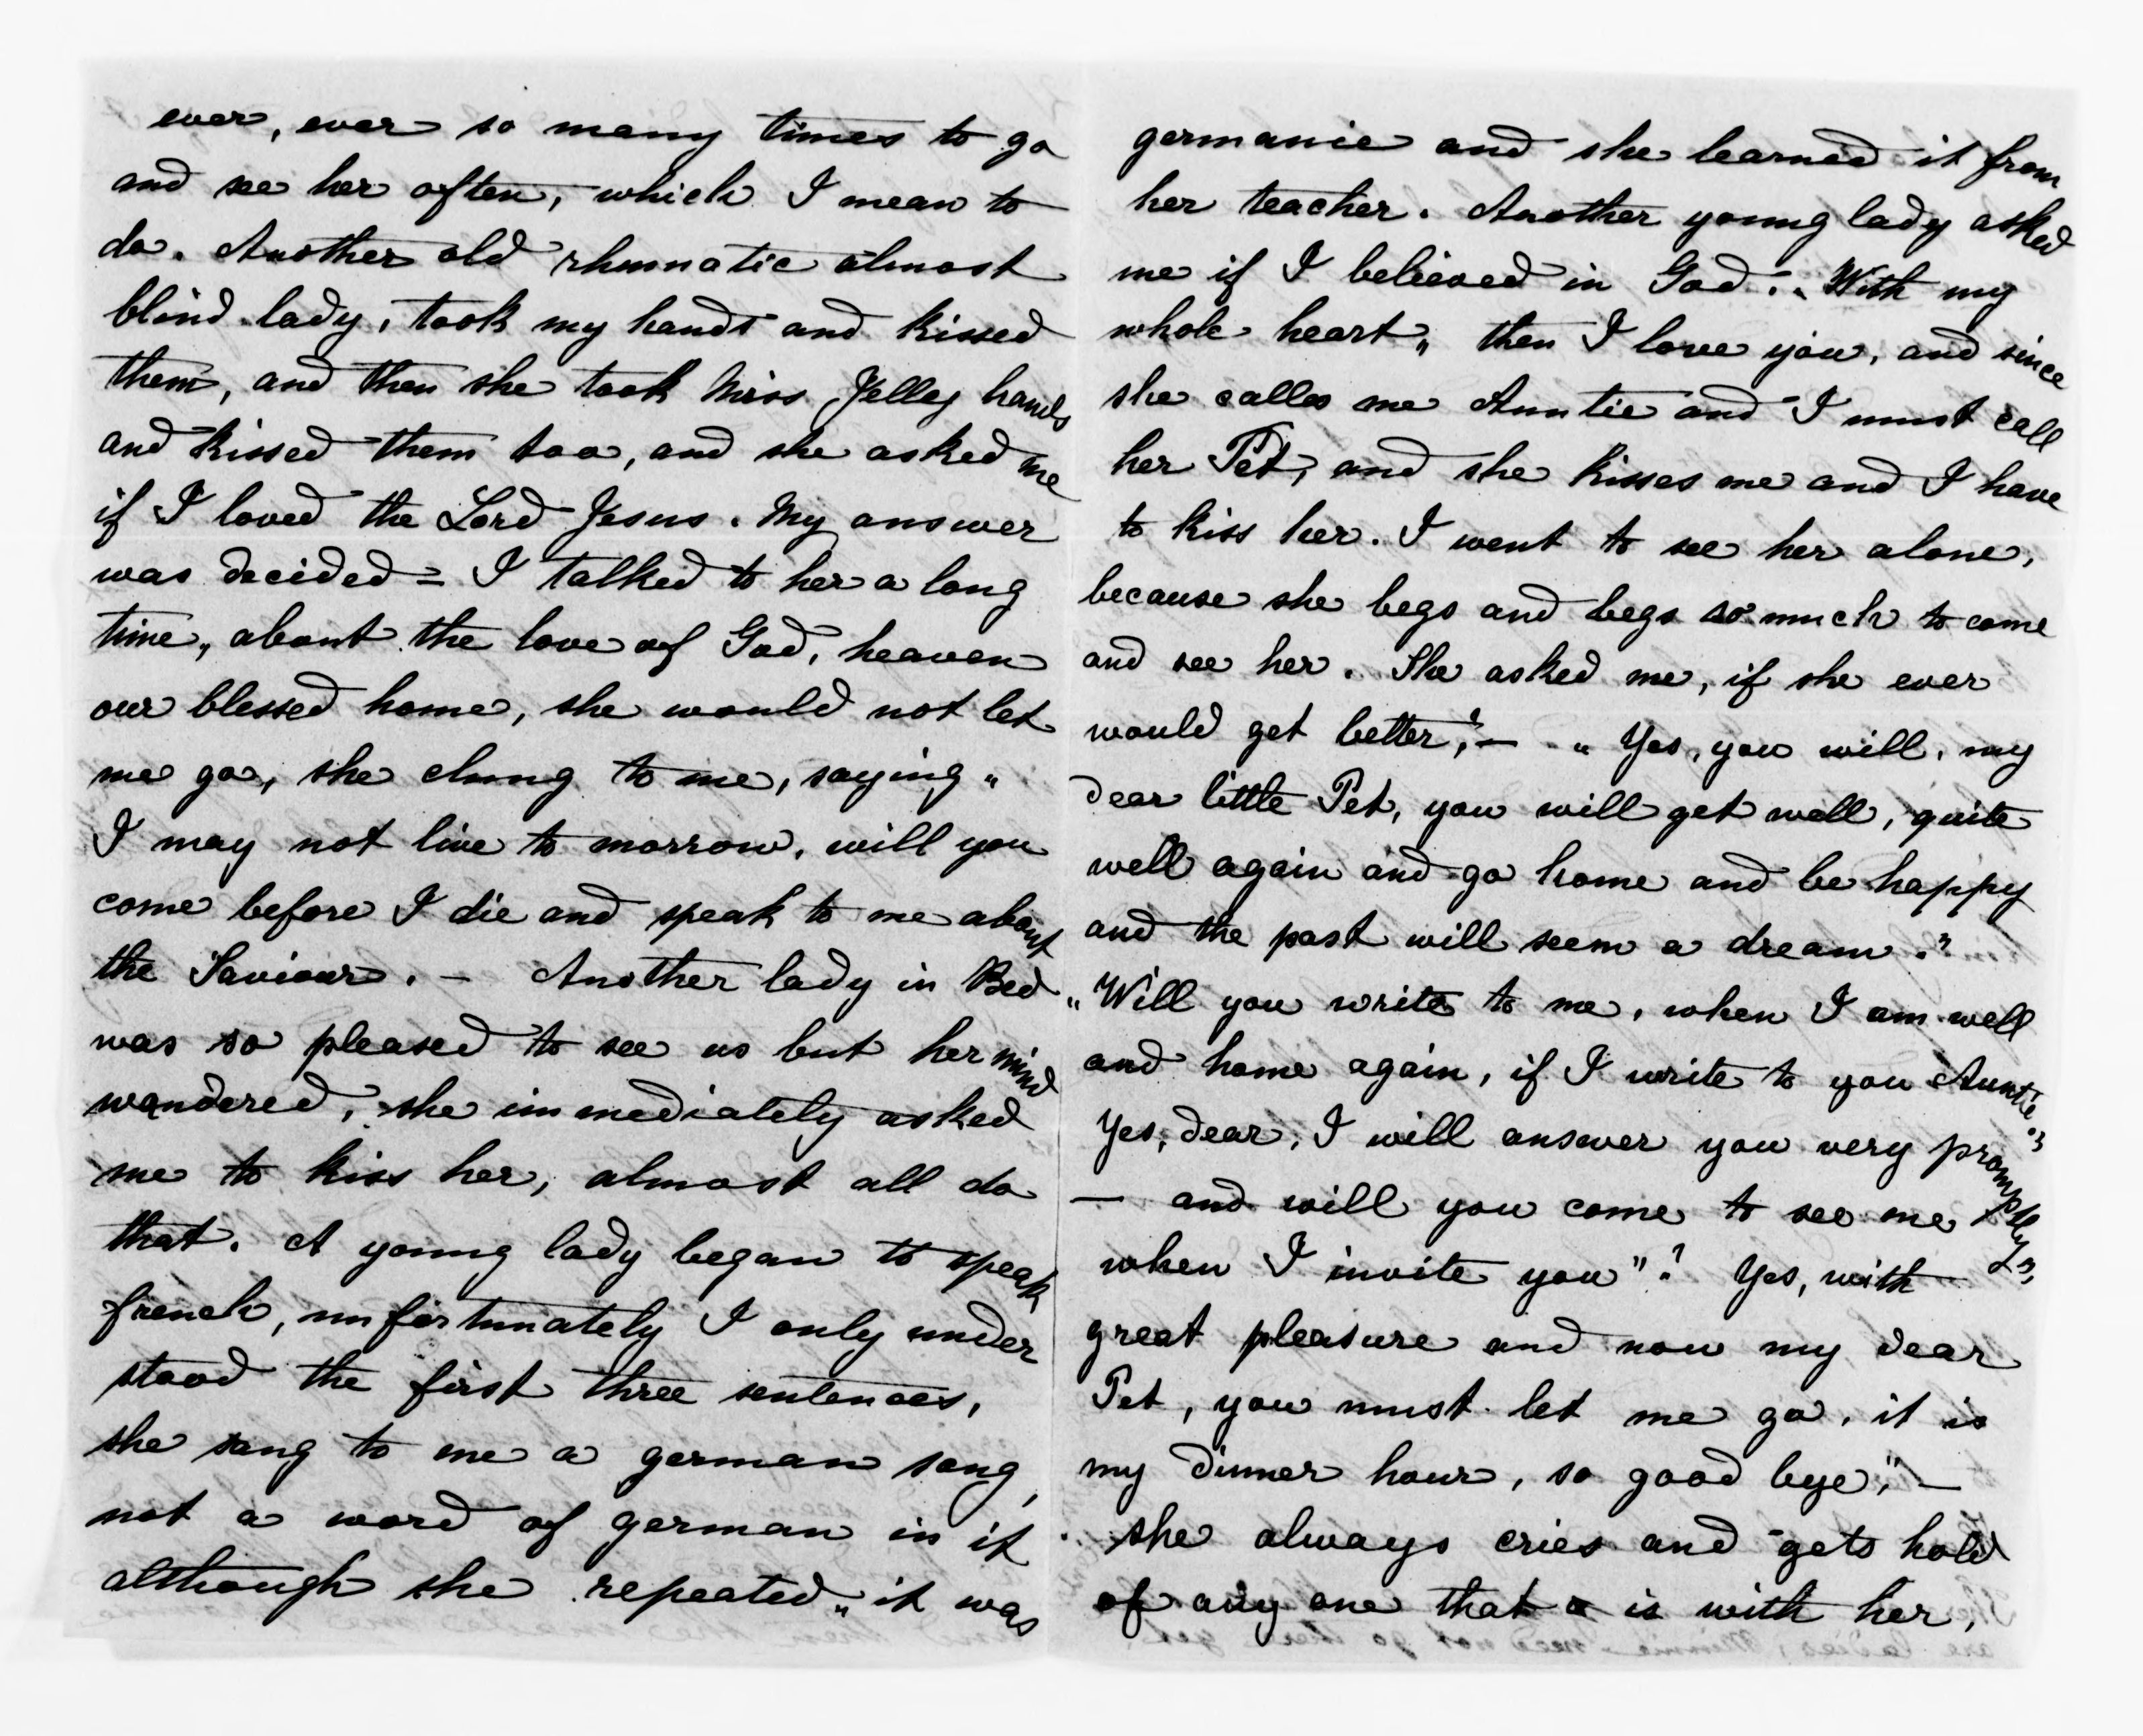 ever, ever so many times to go
and see her often, which I mean to
do. Another old rhumatic almost
blind lady, took my hands and kissed
them, and then she took Miss Jelley hands
and kissed them too, and she asked me
if I loved the Lord Jesus. My answer
was decided = I talked to her a long
time, about the love of God, heaven
our blessed home, she would not let
me go, she clung to me, saying "
I may not live to morrow, will you
come before I die and speak to me about
the Saviour. — Another lady in Bed
was so pleased to see us but her mind
wandered, she immediately asked
me to kiss her, almost all do
that. A young lady began to speak
french, unfortunately I only under
stood the first three sentences,
she sang to me a german song,
not a word of german in it
although she repeated „ it was
germanie and she learned it from
her teacher. Another young lady asked
me if I believed in God. „ With my
whole heart „ then I love you, and since
she calles me Auntie and I must call
her Pet, and she kisses me and I have
to kiss her. I went to see her alone,
because she begs and begs so much to come
and see her. She asked me, if she ever
would get better, ? — „ Yes, you will, my
dear little Pet, you will get well, quite
well again and go home and be happy
and the past will seem a dream."
„Will you write to me, when I am well
and home again, if I write to you Auntie?"
Yes, dear, I will answer you very promptly",
— and will you come to see me
when I invite you"? Yes, with
great pleasure and now my dear
Pet, you must let me go, it is
my dinner hour, so good bye", —
she always cries and gets hold
of any one that is with her,